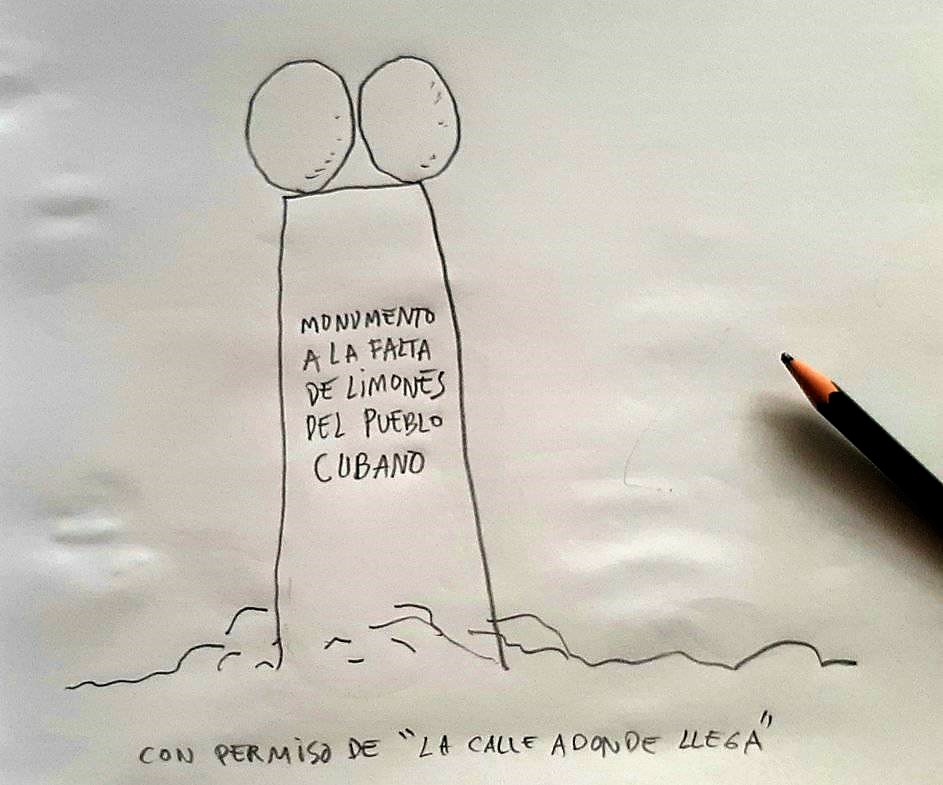 MONUMENTO
A LA FALTA
DE LIMONES
DEL PUEBLO
CUBANO
CON PERMISO DE "LA CALLE ADONDE LLEGA"